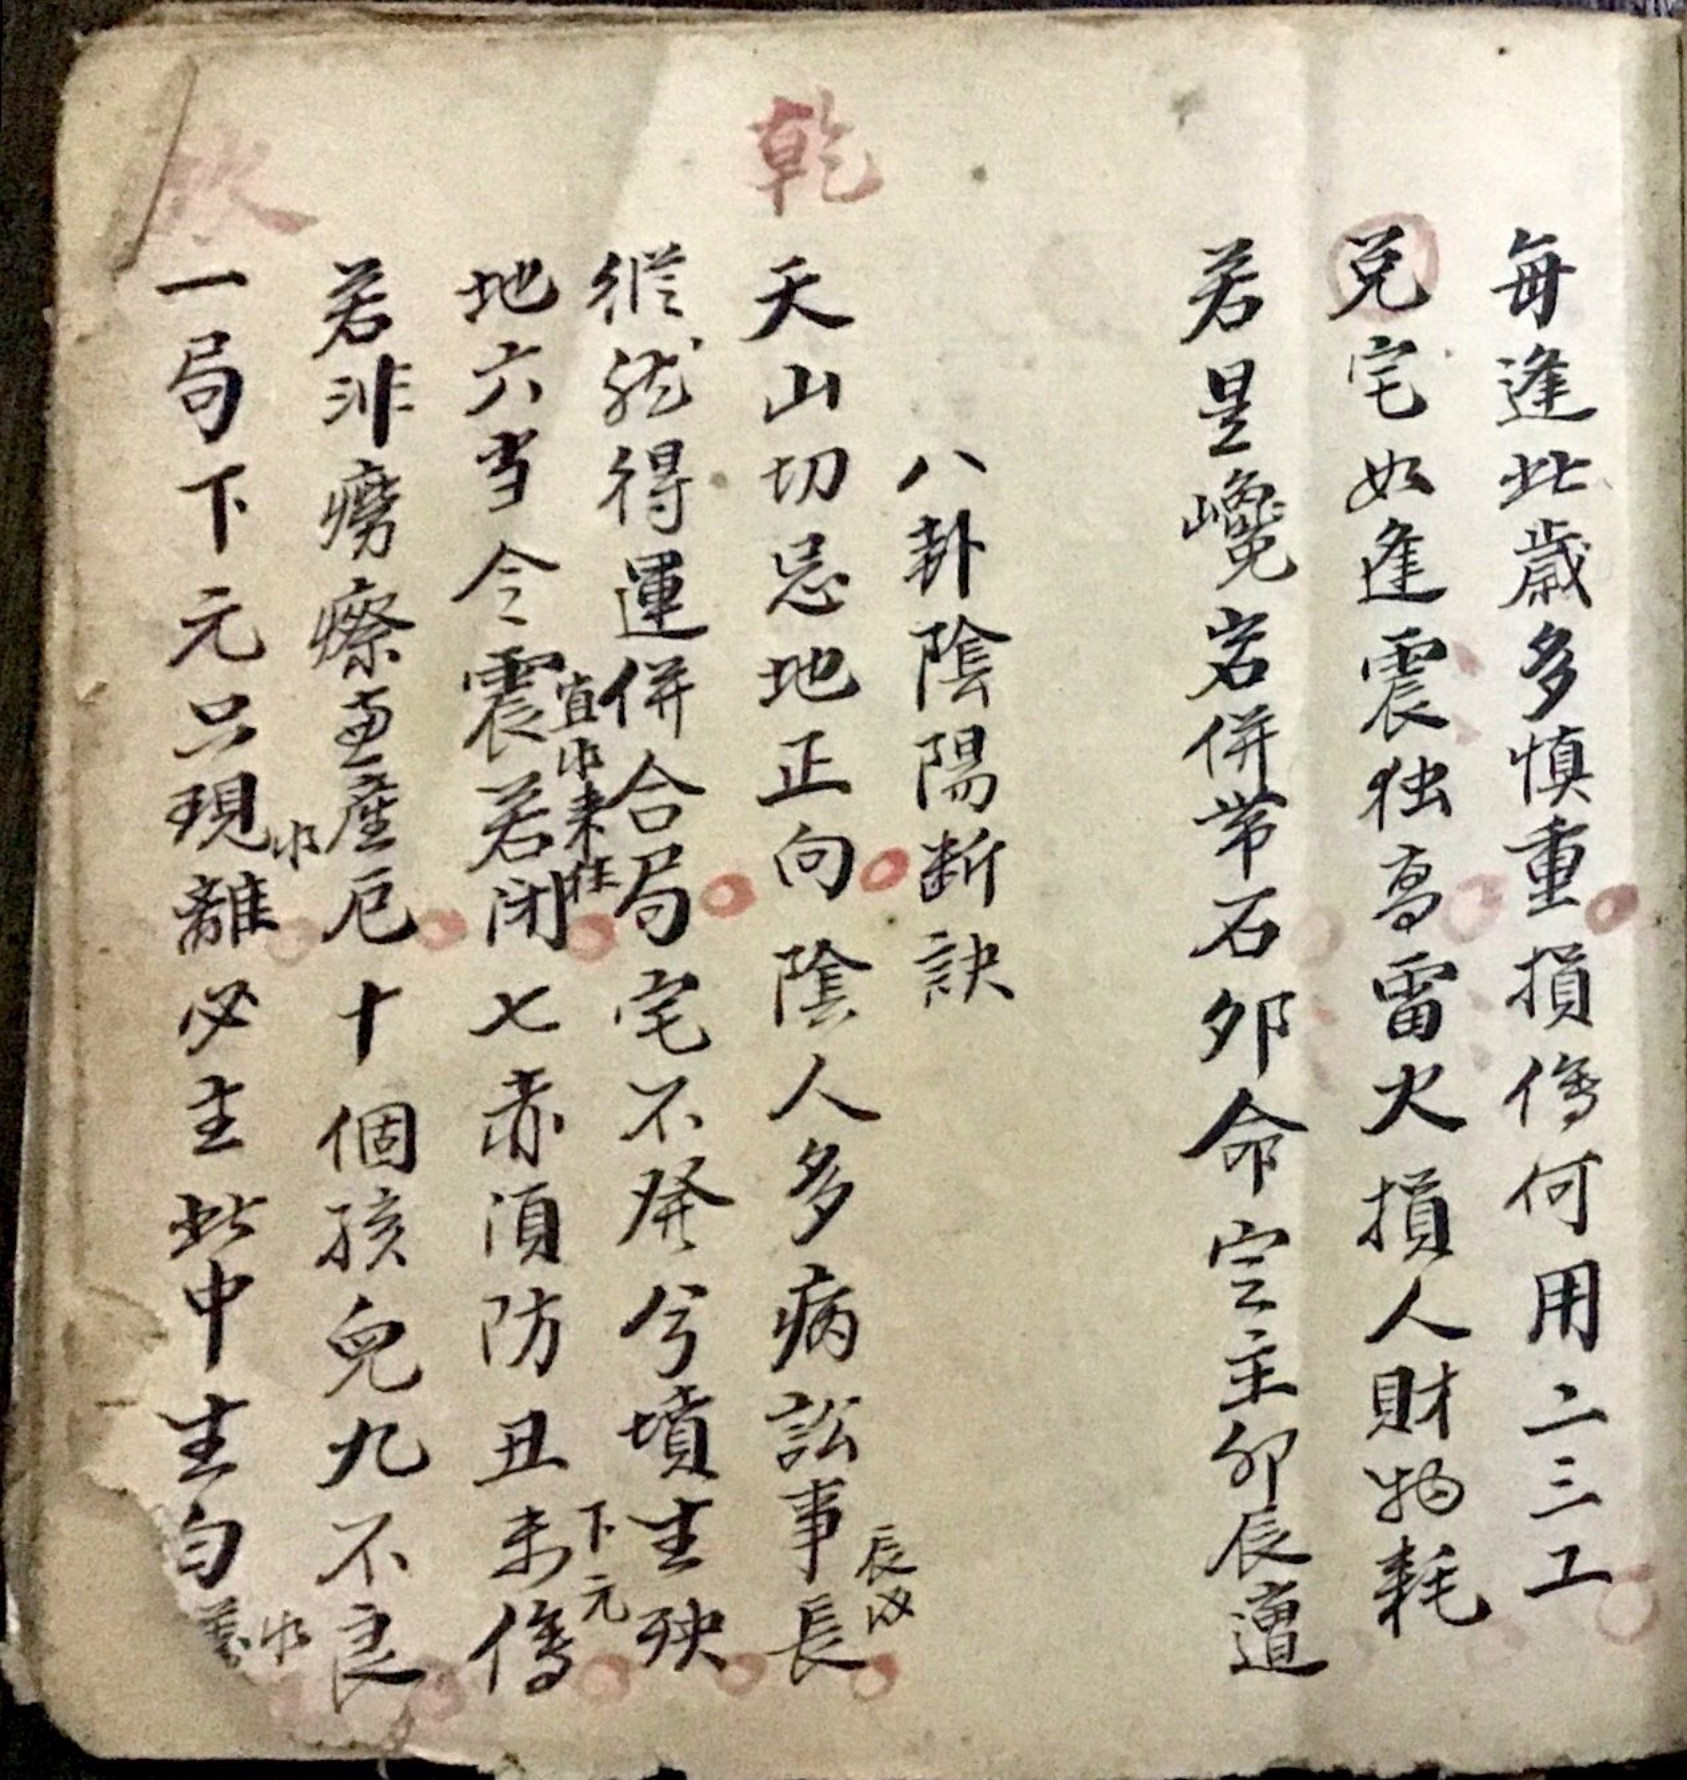 每逢此歲多慎重損傷何用二三工
兑宅如逢震独高雷火損人財物耗
若是巉岩併带石卯命宅主卯辰遭
八卦陰陽断訣
乾
天山切忌地正向陰人多病訟事長
辰戌
縱然得運併合局宅不発兮墳生殃
宜水来往
下元
地六当令震若闭七赤須防丑未傷
若非癆瘵並産厄十個孩兒九不良
水
一局下元只現離必主此中生白
水